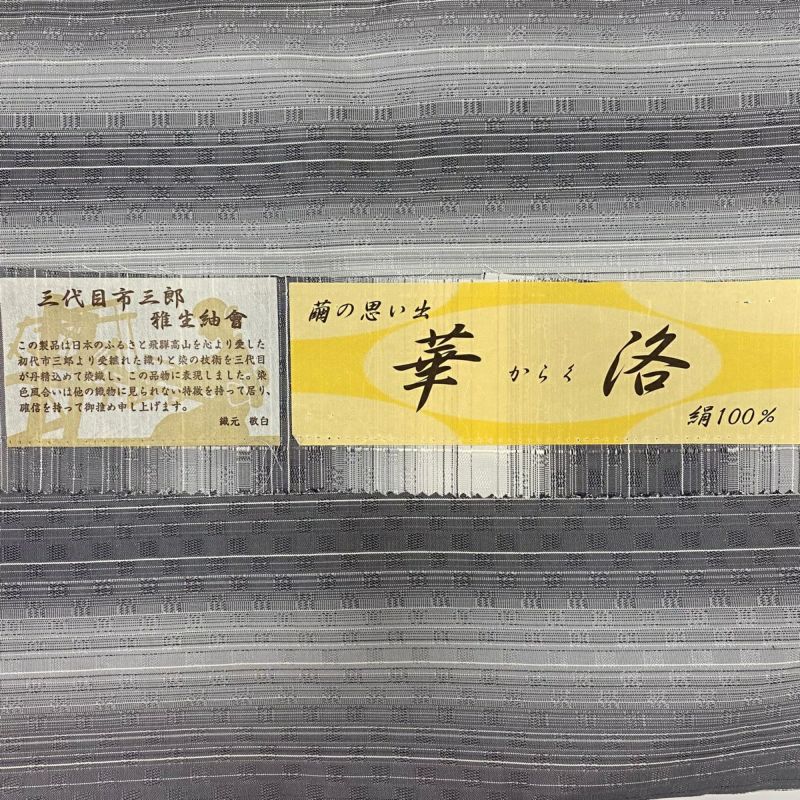 三代目市三郎
雅生紬會
この製品は日本のふるさと飛騨高山を心より愛した
初代市三郎より受継れた織りと染の技術を三代目
が丹精込めて染織し、この品物に表現しました。染
色風合いは他の織物に見られない特徴を持って居り、
確信を持って御推め申し上げます。
織元 敬白
繭の思い出
華 からく 洛
絹100%